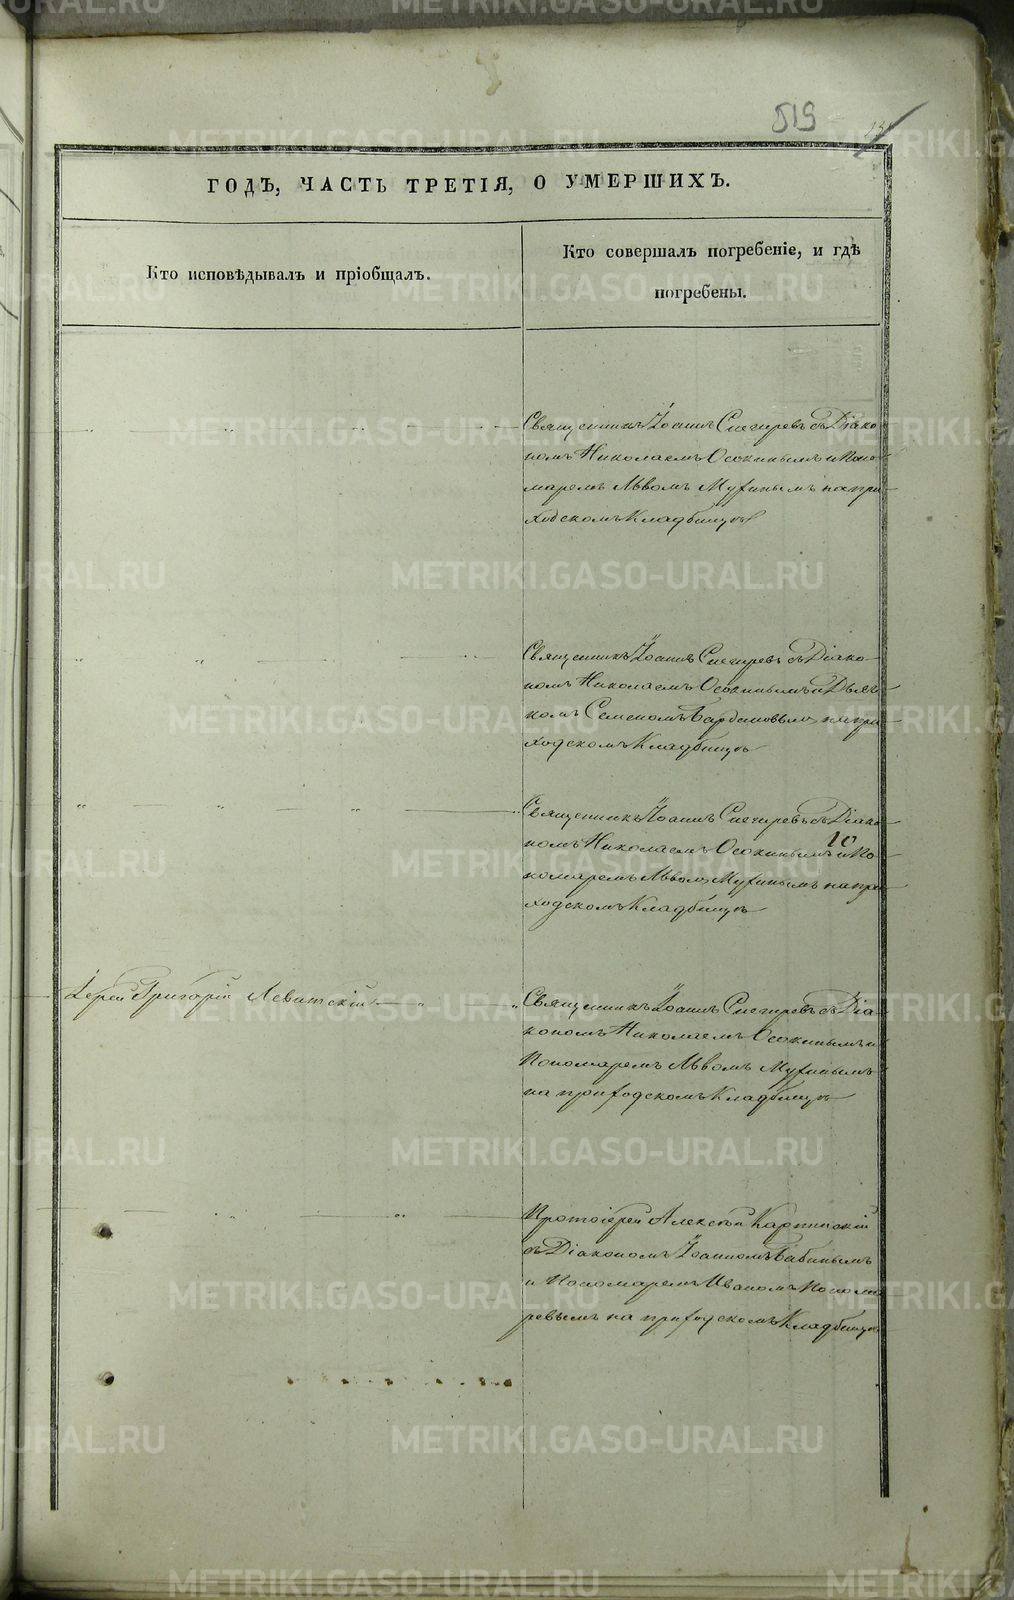 519
ГОДЪ, ЧАСТЬ ТРЕТІЯ, О УМЕРШИХЪ.
Кто исповѣдывалъ и пріобщалъ.
Кто совершалъ погребеніе, и гдѣ
погребены.
Священникъ Іоаннъ Снегиревъ съ Діако-
номъ Николаемъ Осокинымъ и Поно-
маремъ Львомъ Мухинымъ на при-
ходскомъ Кладбищѣ
Священникъ Іоаннъ Снегиревъ съ Діако-
номъ Николаемъ Осокинымъ и Дьяч-
комъ Семеномъ на при-
ходскомъ Кладбищѣ
Священникъ Іоаннъ Снегиревъ съ Діако-
10
номъ Николаемъ Осокинымъ и По-
номаремъ Львомъ Мухинымъ на при-
ходскомъ Кладбищѣ
Іерей Григорій Левитскій
Священникъ Іоаннъ Снегиревъ съ Діа-
кономъ Николаемъ Осокинымъ и
Пономаремъ Львомъ Мухинымъ
на приходскомъ Кладбищѣ
Протоіерей Алексѣй Карпинскій
съ Діакономъ Іоанномъ Бабинымъ
и Пономаремъ Иваномъ Понома-
ревымъ на приходскомъ Кладбищѣ
METRIKI.GASO-URAL.RU